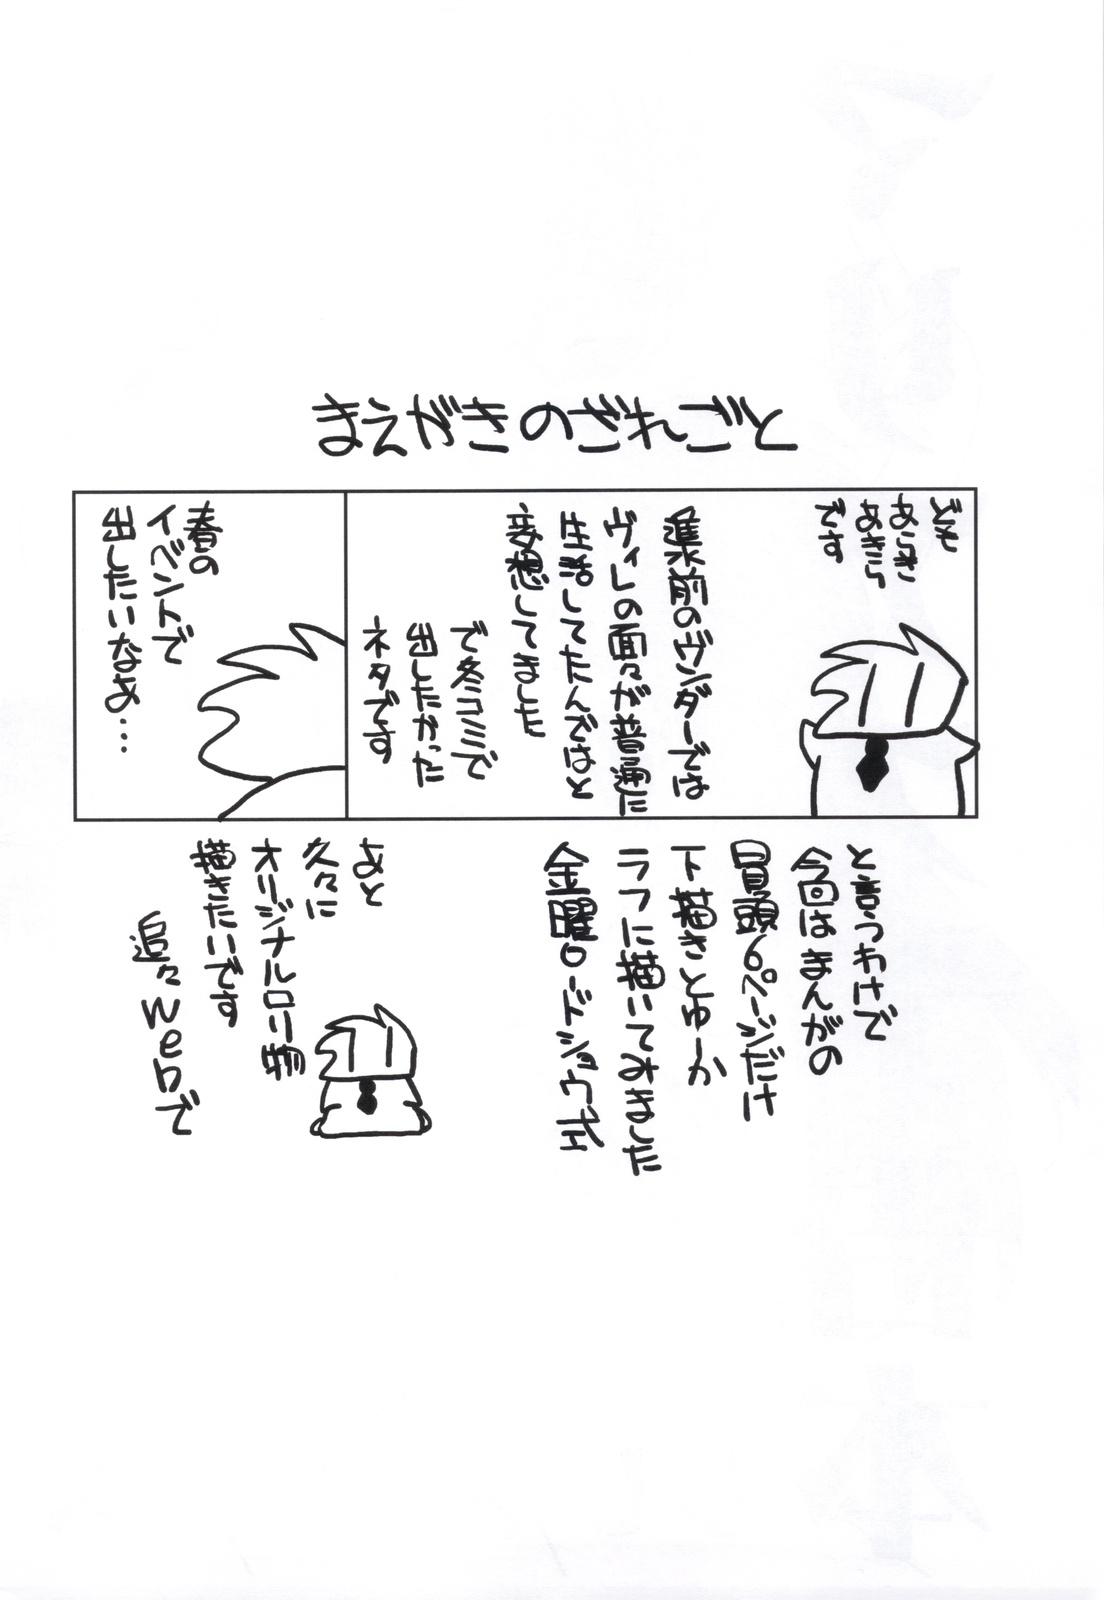 まえがきのざれごと
ども
あらき
あきら
です
集前のヴンダーでは
ヴィレの面々が普通に
生活してたんではと
妄想してました
で冬コミで
出したかった
ネタです
春の
イベントで
出したいなあ…
と言うわけで
今回はまんがの
冒頭6ページだけ
下描きとゆーか
ラフに描いてみました
金曜ロードショウ式
あと
久々に
オリジナルロリ物
描きたいです
追々webで